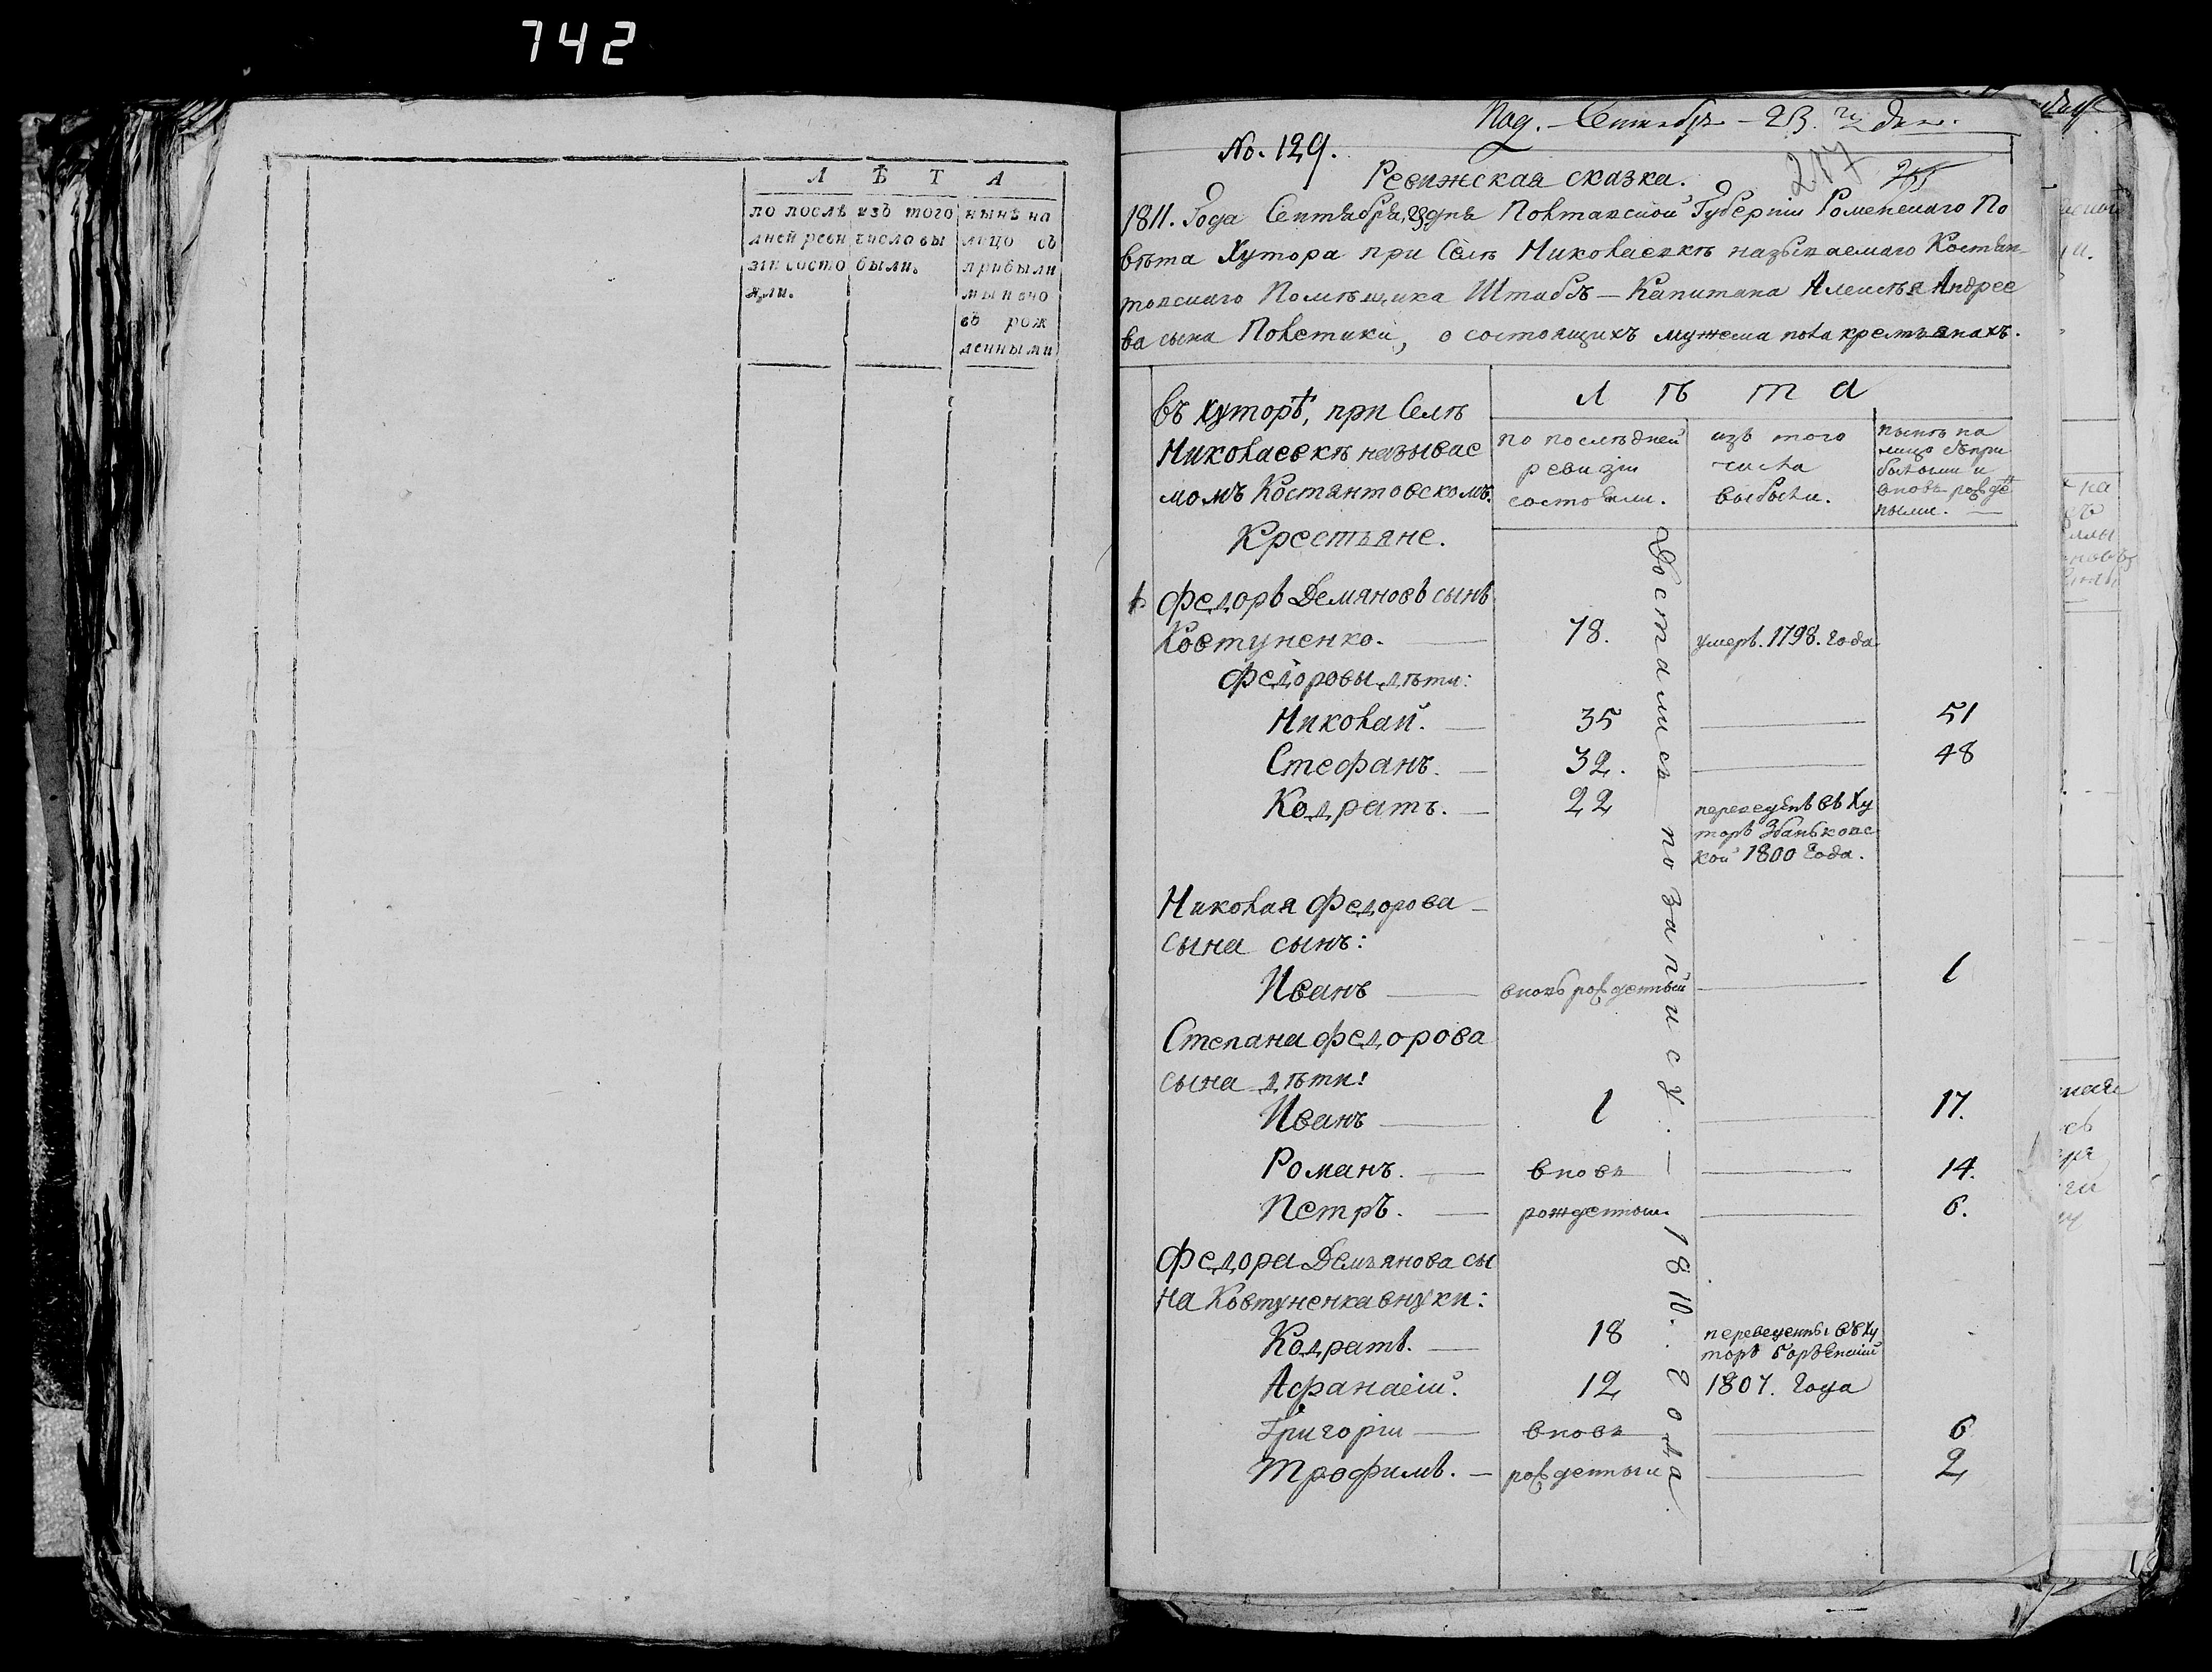 742
Л Ѣ Т А
по послѣ
дней реви
зіи состо
яли.
изъ того
числа вы
были.
нынѣ на
лицо съ
прибыли
ми и вно
въ рож
денными
Под. Сентября 23. дня.
No. 129.
217
Ревижская сказка.
1811. Года Сентября, 23 дня Полтавской Губерніи Роменскаго По
вѣта Хутора при Селѣ Николаевкѣ называемаго Костян
товскаго Помѣщика Штабсъ-Капитана Алексѣя Андрее
ва сына Полетики, о состоящихъ мужеска пола крестьянахъ.
Въ Хуторѣ, при Селѣ
Николаевкѣ называе
момъ Костянтовскомъ.
Крестьяне.
Л ѣ т а
по послѣдней
ревизіи
состояли.
изъ того
числа
выбыли.
нынѣ на
лицо съ при
былыми и
вновь рожде
ными.
1 Федоръ Демяновъ сынъ
Ковтуненко. 78. умеръ. 1798. Года
Федоровы дѣти:
Николай. 35 51
Стефанъ. 32. 48
Кодратъ. 22 переведенъ въ Ху
торъ Збанковс
кой 1800 Года.
Николая Федорова
сына сынъ:
Иванъ вновь рожденный 1
Степана Федорова
сына дѣти:
Иванъ 1 17.
Романъ. вновь 14.
Петръ. рожденные 6.
Федора Демьянова сы
на Ковтуненка внуки:
Кодратъ. 18 переведены въ Ху
торъ
Афанасій. 12 1807. Года
Григорій вновь 6
Трофимъ. рожденныи 2
Достались по запису. — 1810. Года.